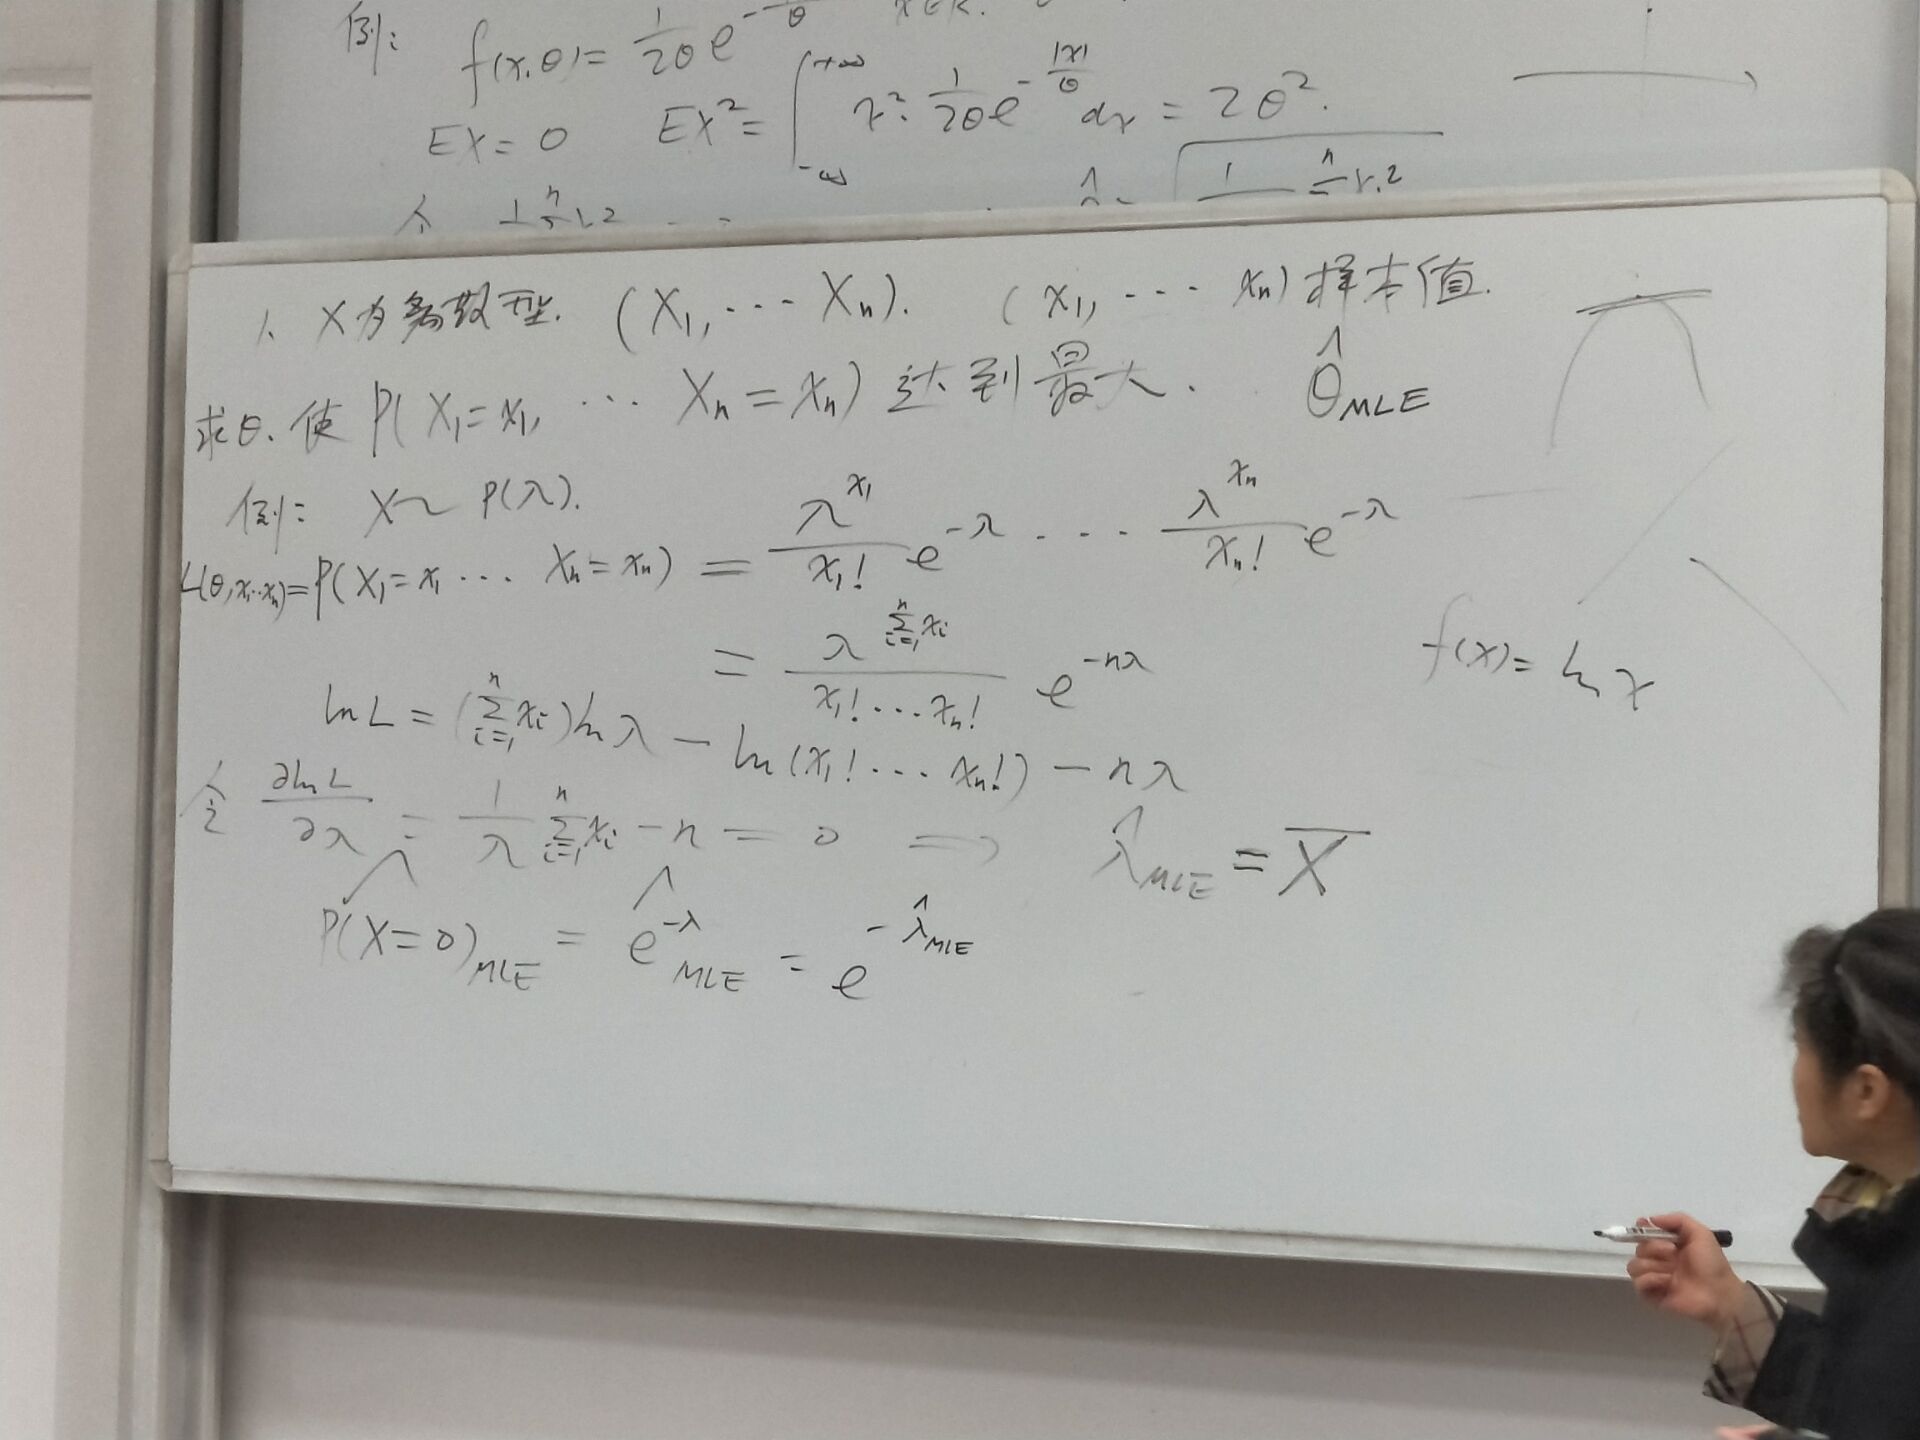 例: f(x,θ)= 1/(2θ) e^{-/θ} x∈R.
EX=0 EX²= ∫_{-∞}^{+∞} x²·1/(2θ) e^{-|x|/θ} dx = 2θ².
令 1/n
1. X为离散型. (X₁,⋯ Xₙ). (x₁,⋯ xₙ)样本值.
求θ.使 P(X₁=x₁, ⋯ Xₙ=xₙ)达到最大. θ̂_{MLE}
例: X~P(λ).
L(θ,x₁⋯xₙ)=P(X₁=x₁⋯ Xₙ=xₙ) = λ^{x₁}/x₁! e^{-λ} ⋯ λ^{xₙ}/xₙ! e^{-λ}
= λ^{∑_{i=1}^{n} xᵢ}/(x₁!⋯xₙ!) e^{-nλ}
f(x)= ln x
ln L = (∑_{i=1}^{n} xᵢ) ln λ − ln(x₁!⋯xₙ!) − nλ
令 ∂ln L/∂λ = 1/λ ∑_{i=1}^{n} xᵢ − n = 0 ⟹ λ̂_{MLE} = X̄
P̂(X=0)_{MLE} = ê^{-λ}_{MLE} = e^{-λ̂_{MLE}}